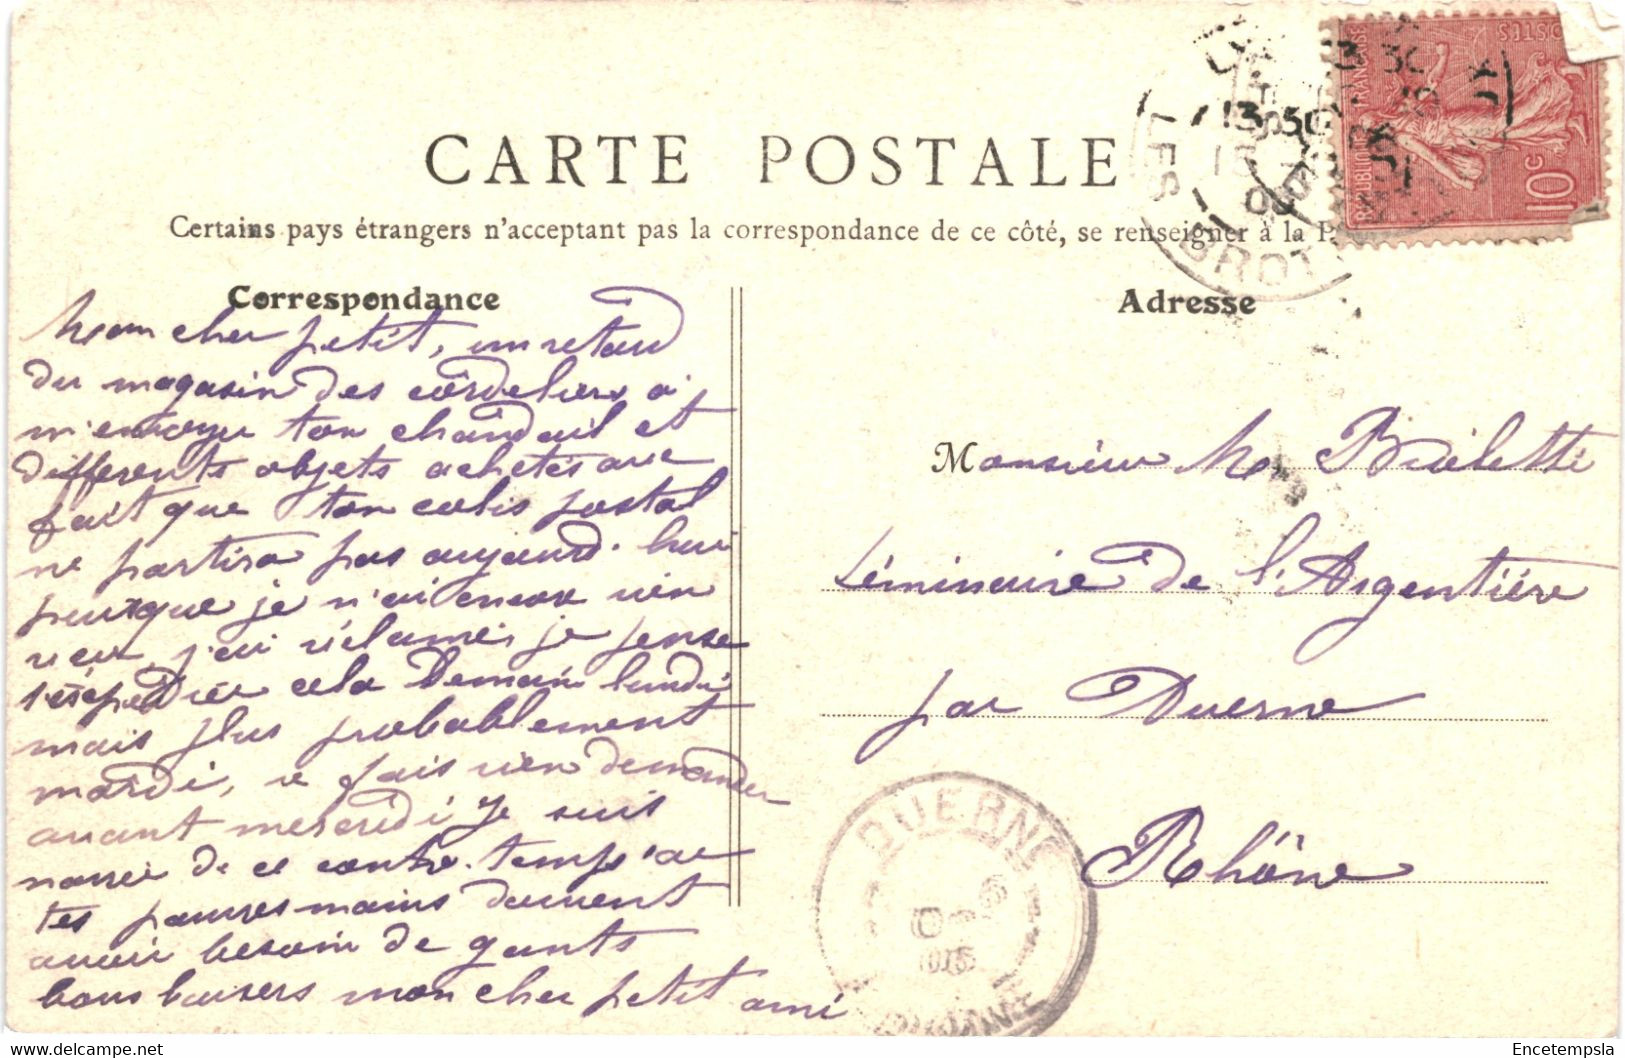 CARTE POSTALE
Certains pays étrangers n'acceptant pas la correspondance de ce côté, se renseigner à la P
Correspondance
Mon cher petit, un retard
du magasin des cordeliers à
m'envoyer ton chandail et
differents objets achetés
fait que ton colis postal
ne partira pas aujourd'hui
puisque je n'ai encore rien
reçu, j'ai réclamé, je pense
t'éxpédier cela Demain lundi
mais plus probablement
mardi, ne fais rien demander
avant mercredi je suis
navrée de ce contre-temps car
tes pauvres mains doivent
avoir besoin de gants
bons baisers mon cher petit ami
Adresse
Monsieur M. Bialette
Séminaire de l'Argentière
par Duerne
Rhône
REPUBLIQUE FRANÇAISE
POSTES
10c
13 30
LES BROT
DUERNE
Encetempsla